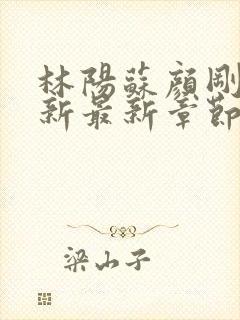 林陽蘇顏剛
新最新章節
梁山子